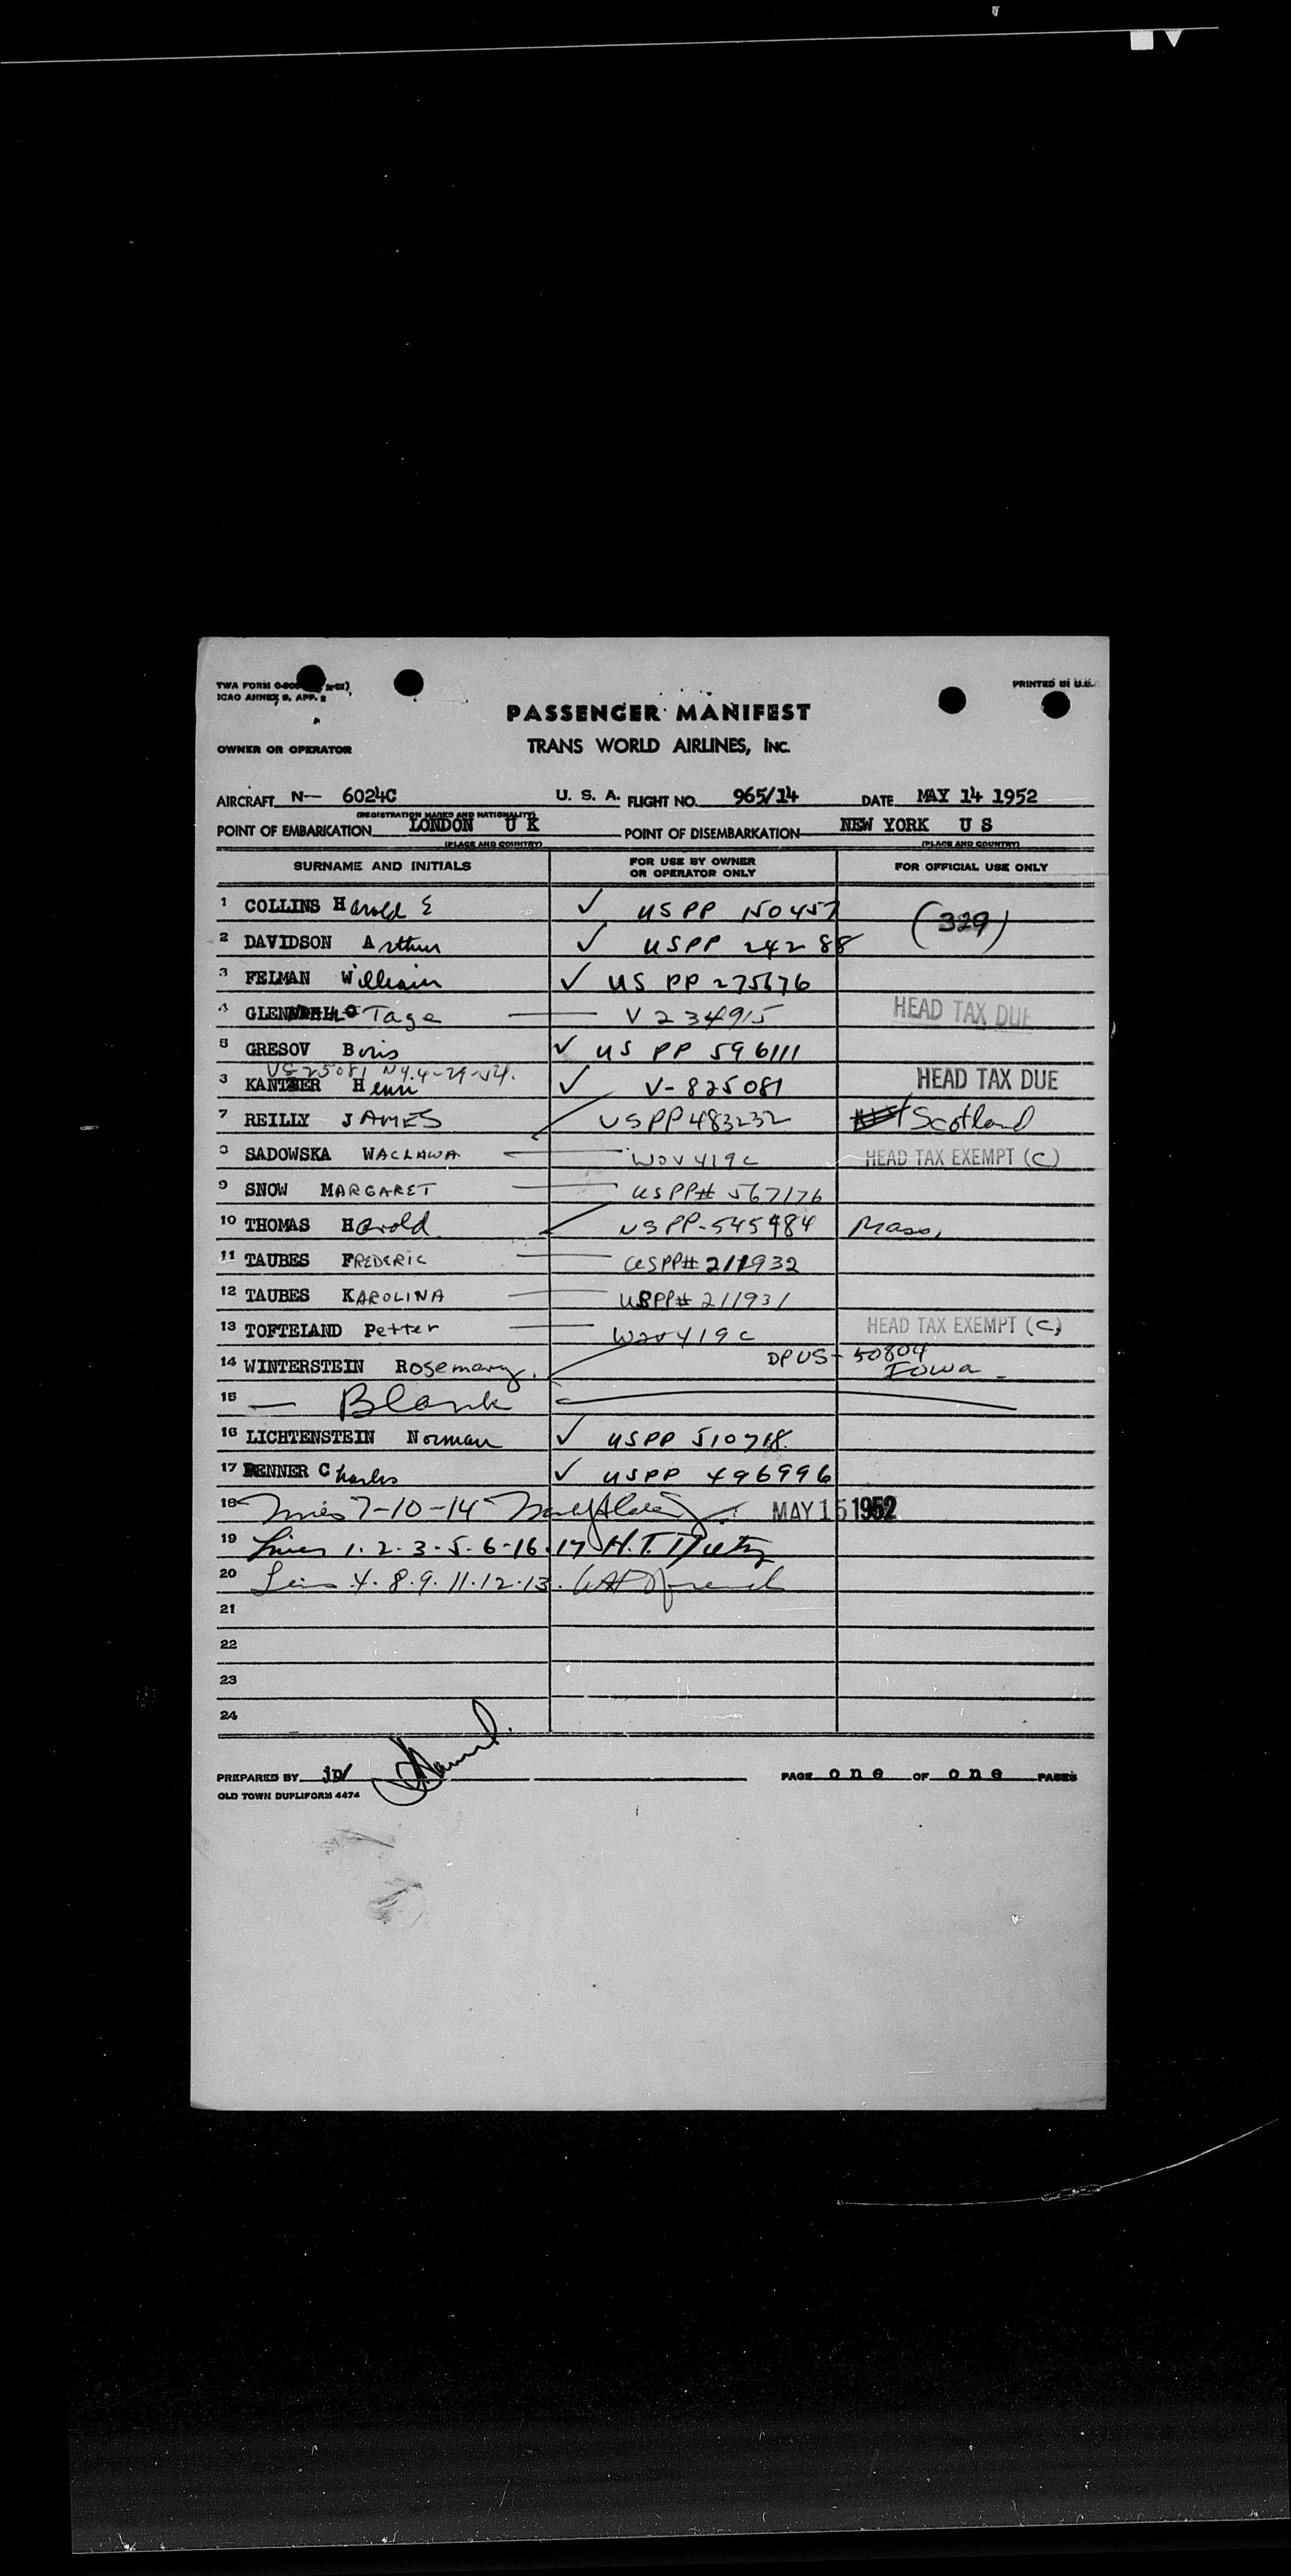 TWA FORM
ICAO ANNEX 9, APP. 2
PRINTED IN U.S.
PASSENGER MANIFEST
OWNER OR OPERATOR TRANS WORLD AIRLINES, INC.
AIRCRAFT N-- 6024C U. S. A. FLIGHT NO. 965/14 DATE MAY 14 1952
(REGISTRATION MARKS AND NATIONALITY)
POINT OF EMBARKATION LONDON U K POINT OF DISEMBARKATION NEW YORK U S
(PLACE AND COUNTRY) (PLACE AND COUNTRY)
SURNAME AND INITIALS FOR USE BY OWNER OR OPERATOR ONLY FOR OFFICIAL USE ONLY
1 COLLINS Harold E ✓ USPP 150457 (329)
2 DAVIDSON Arthur ✓ USPP 24288
3 FELMAN William ✓ US PP 275676
4 Tage — V 234915 HEAD TAX DUE
5 GRESOV Boris ✓ US PP 596111
N4.4-29-54.
KANTZER Henri ✓ V-825081 HEAD TAX DUE
7 REILLY JAMES USPP483232 Scotland
SADOWSKA WACLAWA — WOV419C HEAD TAX EXEMPT (C)
9 SNOW MARGARET — USPP# 567176
10 THOMAS Harold USPP-545484 Mass,
11 TAUBES FREDERIC — USPP# 211932
12 TAUBES KAROLINA — USPP# 211931
13 TOFTELAND Petter — WOV419C HEAD TAX EXEMPT (C)
14 WINTERSTEIN Rosemary. DPUS-50804
Iowa
15 — Blank
16 LICHTENSTEIN Norman ✓ USPP 510718
17 Charles ✓ USPP 496996
18 Lines 7-10-14 MAY 15 1952
19 Lines 1.2.3.5.6-16.17 H.T.
20 Lines 4.8.9.11.12.13.
21
22
23
24
PREPARED BY jp/ PAGE one OF one PAGES
OLD TOWN DUPLIFORM 4474